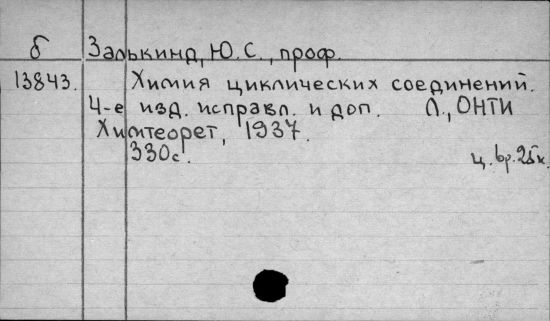 б Залькинд, Ю.С., проф.
13843. Химия циклических соединений.
4-е изд. исправл. и доп. Л., ОНТИ
Химтеорет, 1937.
330с. ц. 6р.25к.